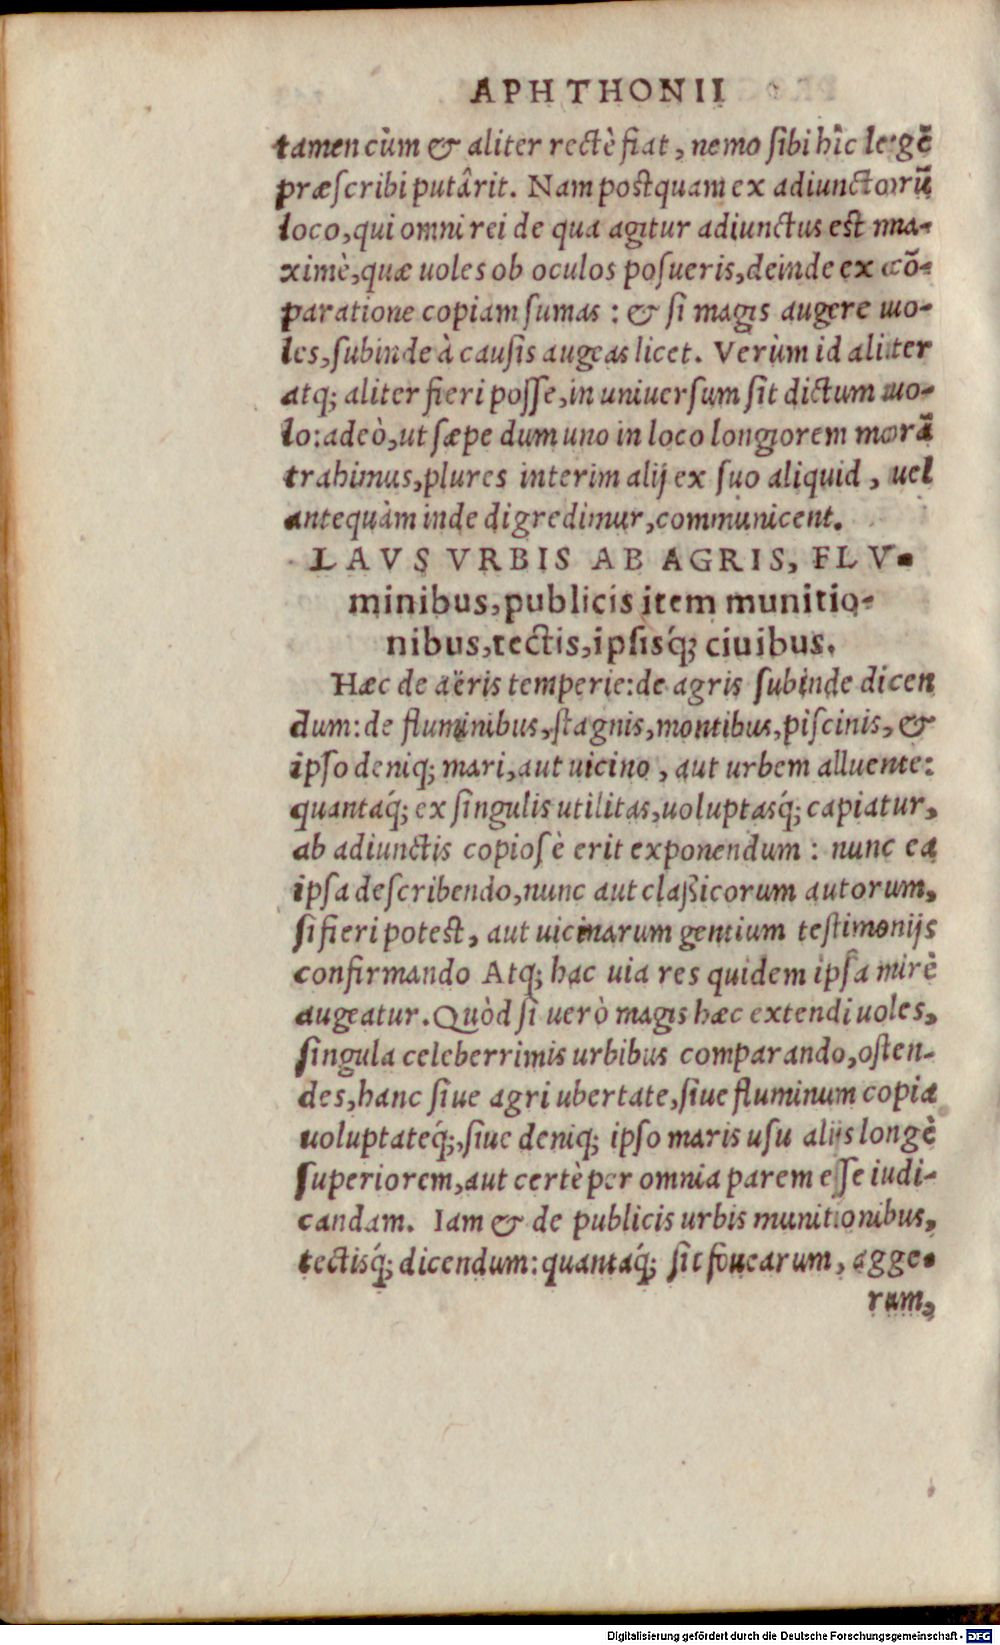 APHTHONII
tamen cùm & aliter rectè fiat, nemo sibi hîc legē
præscribi putârit. Nam postquam ex adiunctorū
loco, qui omni rei de qua agitur adiunctus est ma-
ximè, quæ uoles ob oculos posueris, deinde ex cō-
paratione copiam sumas: & si magis augere uo-
les, subinde à causis augeas licet. Verùm id aliter
atq; aliter fieri posse, in uniuersum sit dictum uo-
lo: adeò, ut sæpe dum uno in loco longiorem morā
trahimus, plures interim alij ex suo aliquid, uel
antequàm inde digredimur, communicent.
LAVS VRBIS AB AGRIS, FLV-
minibus, publicis item munitio-
nibus, tectis, ipsisq́; ciuibus.
Hæc de aëris temperie: de agris subinde dicen
dum: de fluminibus, stagnis, montibus, piscinis, &
ipso deniq; mari, aut uicino, aut urbem alluente:
quantaq́; ex singulis utilitas, uoluptasq́; capiatur,
ab adiunctis copiosè erit exponendum: nunc ea
ipsa describendo, nunc aut claßicorum autorum,
si fieri potest, aut uicinarum gentium testimonijs
confirmando Atq; hac uia res quidem ipsa mirè
augeatur. Quòd si uerò magis hæc extendi uoles,
singula celeberrimis urbibus comparando, osten-
des, hanc siue agri ubertate, siue fluminum copia
uoluptateq́;, siue deniq; ipso maris usu alijs longè
superiorem, aut certè per omnia parem esse iudi-
candam. Iam & de publicis urbis munitionibus,
tectisq́; dicendum: quantaq́; sit fouearum, agge-
rum,
Digitalisierung gefördert durch die Deutsche Forschungsgemeinschaft - DFG